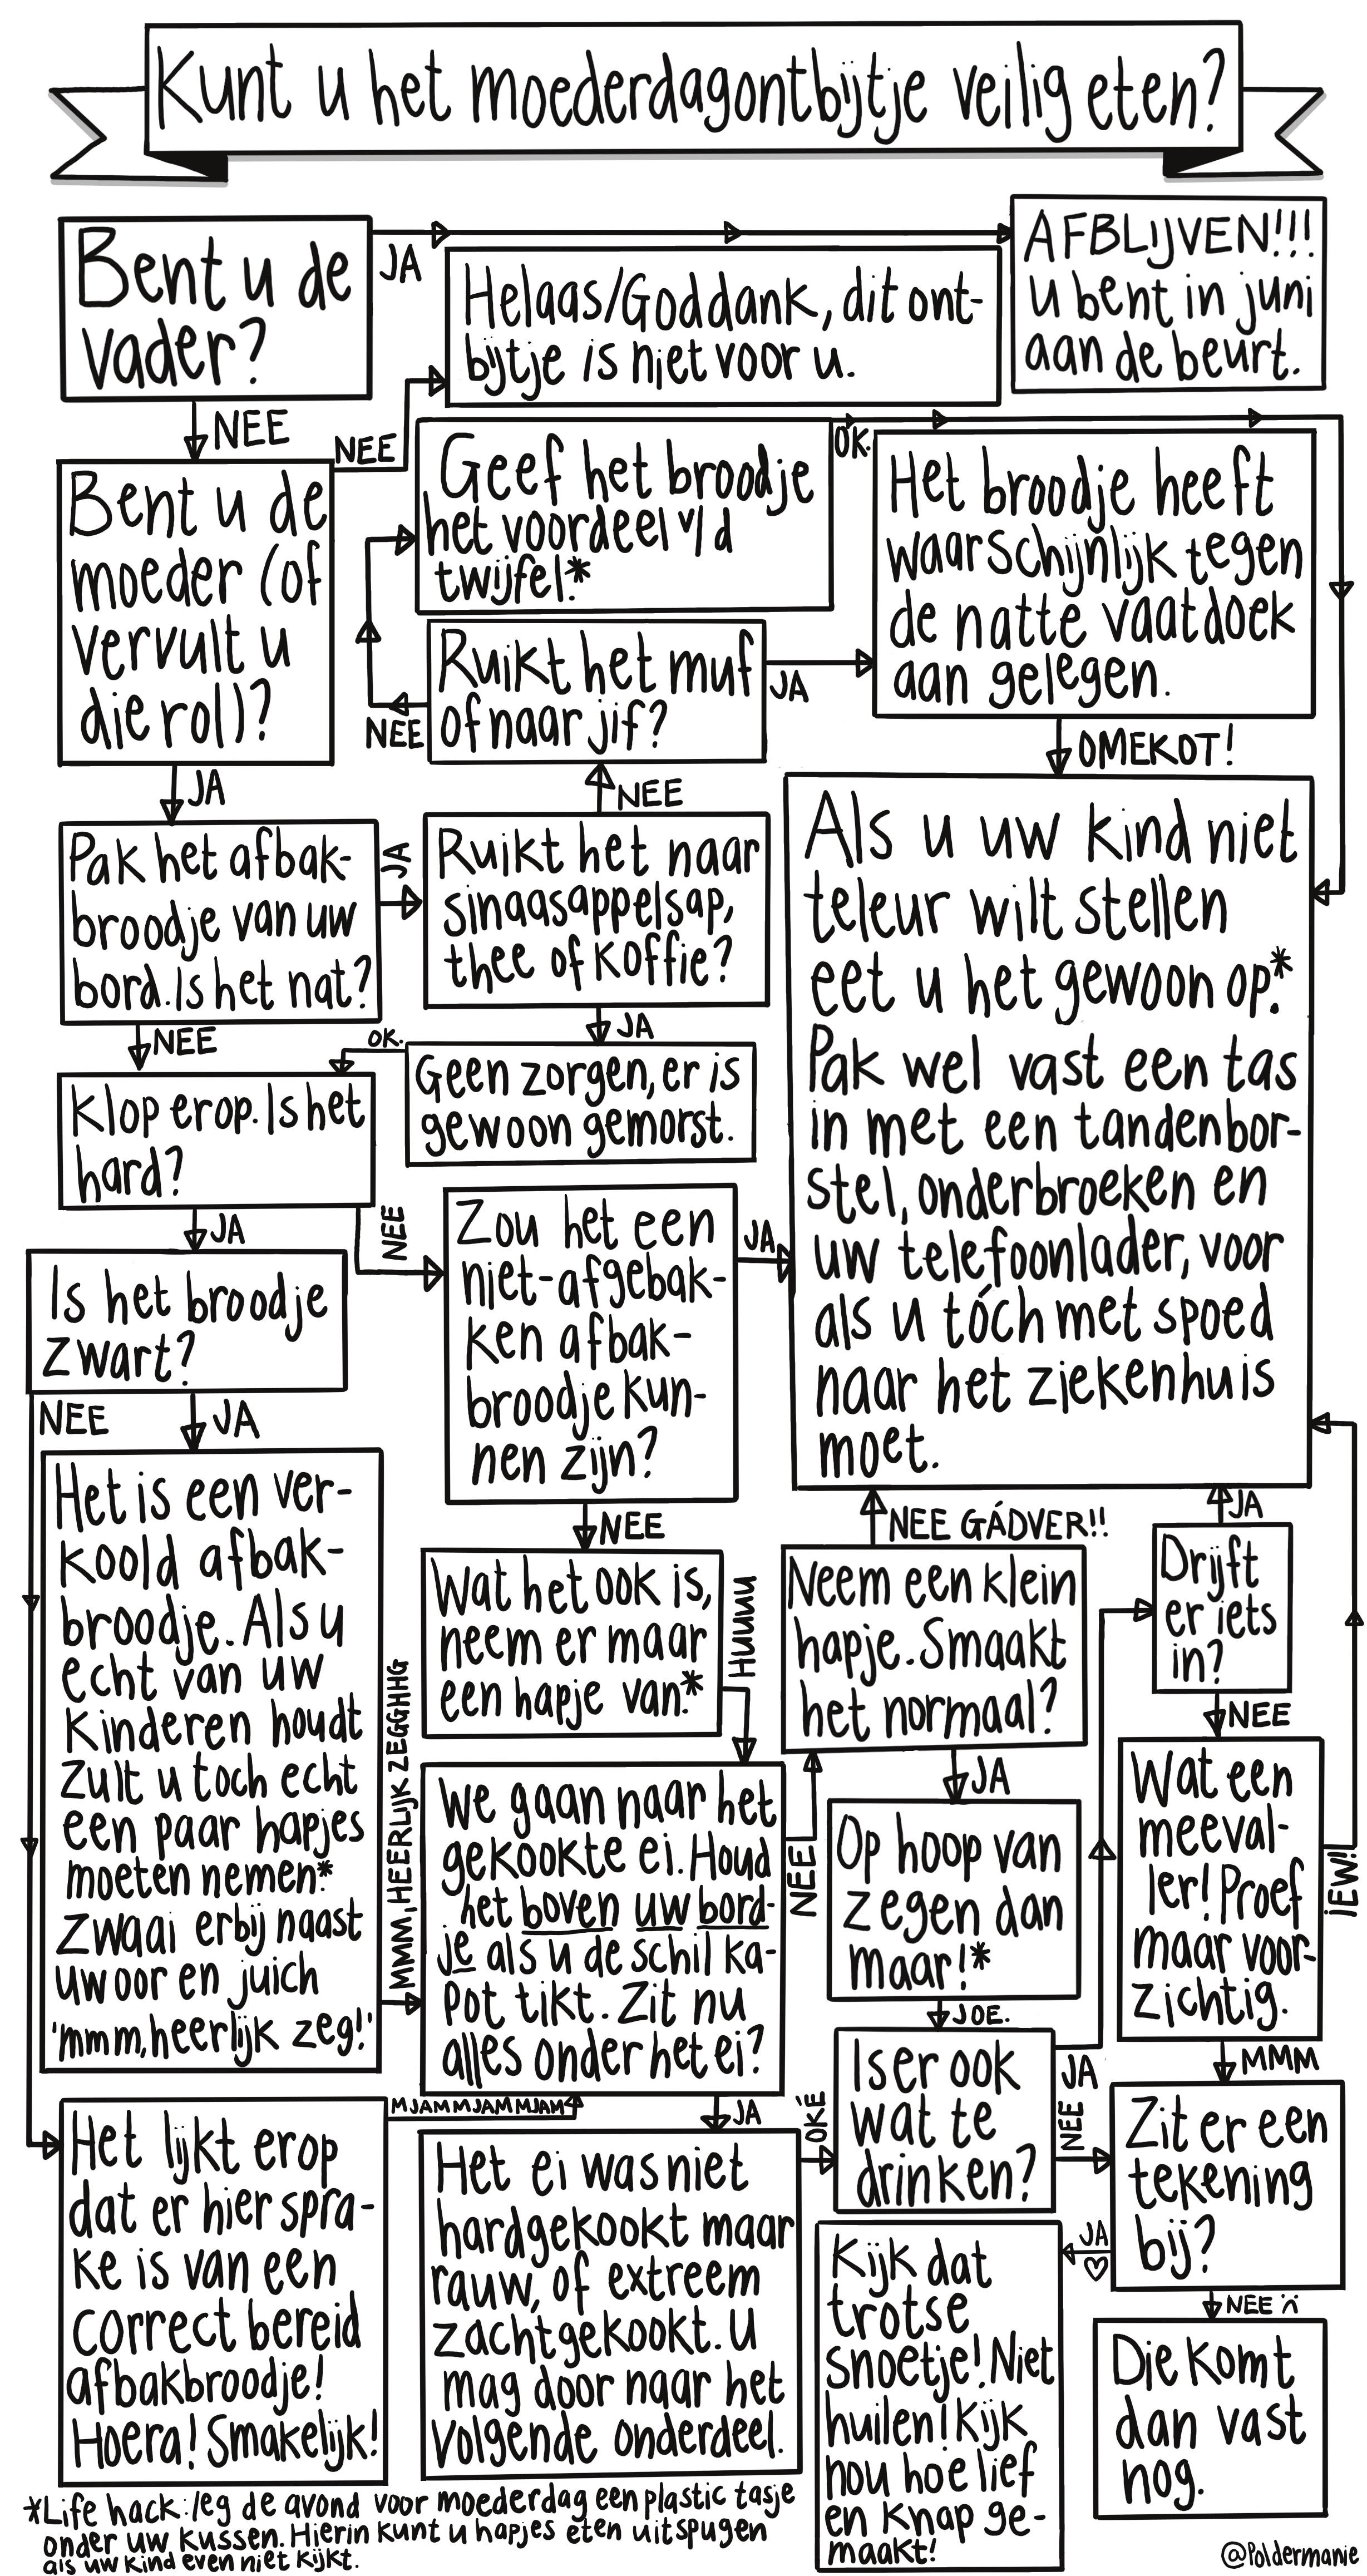 Kunt u het moederdagontbijtje veilig eten?
Bent u de
vader?
JA
AFBLIJVEN!!!
u bent in juni
aan de beurt.
NEE
Bent u de
moeder (of
vervult u
die rol)?
NEE
Helaas/Goddank, dit ont-
bijtje is niet voor u.
JA
Pak het afbak-
broodje van uw
bord. Is het nat?
JA
Ruikt het naar
sinaasappelsap,
thee of koffie?
NEE
Ruikt het muf
of naar jif?
NEE
Geef het broodje
het voordeel v/d
twijfel.*
OK.
JA
Het broodje heeft
waarschijnlijk tegen
de natte vaatdoek
aan gelegen.
OMEKOT!
Als u uw kind niet
teleur wilt stellen
eet u het gewoon op.*
Pak wel vast een tas
in met een tandenbor-
stel, onderbroeken en
uw telefoonlader, voor
als u tóch met spoed
naar het ziekenhuis
moet.
JA
Geen zorgen, er is
gewoon gemorst.
OK.
NEE
Klop erop. Is het
hard?
NEE
Zou het een
niet-afgebak-
ken afbak-
broodje kun-
nen zijn?
JA
NEE
Wat het ook is,
neem er maar
een hapje van.*
HUUUU
JA
Is het broodje
zwart?
NEE
JA
Het is een ver-
koold afbak-
broodje. Als u
echt van uw
kinderen houdt
zult u toch echt
een paar hapjes
moeten nemen.*
Zwaai erbij naast
uw oor en juich
'mmm, heerlijk zeg!'
MMM, HEERLIJK ZEGGHHG
Het lijkt erop
dat er hier spra-
ke is van een
correct bereid
afbakbroodje!
Hoera! Smakelijk!
MJAMMJAMMMJAM
We gaan naar het
gekookte ei. Houd
het boven uw bord-
je als u de schil ka-
pot tikt. Zit nu
alles onder het ei?
NEE
Neem een klein
hapje. Smaakt
het normaal?
NEE GÁDVER!!
JA
Op hoop van
zegen dan
maar!*
JOE.
JA
Het ei was niet
hardgekookt maar
rauw, of extreem
zachtgekookt. U
mag door naar het
volgende onderdeel.
OKÉ
Is er ook
wat te
drinken?
JA
Drijft
er iets
in?
JA
NEE
Wat een
meeval-
ler! Proef
maar voor-
zichtig.
IEW!
MMM
NEE
Zit er een
tekening
bij?
JA
♡
Kijk dat
trotse
snoetje! Niet
huilen! Kijk
nou hoe lief
en knap ge-
maakt!
NEE
Die komt
dan vast
nog.
*Life hack: leg de avond voor moederdag een plastic tasje
onder uw kussen. Hierin kunt u hapjes eten uitspugen
als uw kind even niet kijkt.
@Poldermanie